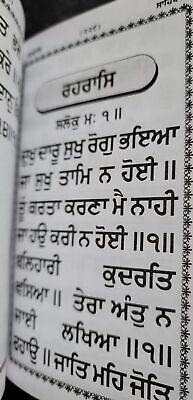 (੧੨੧)
ਰਹਰਾਸਿ
ਸਲੋਕੁ ਮਃ ੧ ॥
ਦੁਖੁ ਦਾਰੂ ਸੁਖੁ ਰੋਗੁ ਭਇਆ
ਜਾ ਸੁਖੁ ਤਾਮਿ ਨ ਹੋਈ ॥
ਤੂੰ ਕਰਤਾ ਕਰਣਾ ਮੈ ਨਾਹੀ
ਜਾ ਹਉ ਕਰੀ ਨ ਹੋਈ ॥੧॥
ਬਲਿਹਾਰੀ ਕੁਦਰਤਿ
ਵਸਿਆ ॥ ਤੇਰਾ ਅੰਤੁ ਨ
ਜਾਈ ਲਖਿਆ ॥੧॥
ਰਹਾਉ ॥ ਜਾਤਿ ਮਹਿ ਜੋਤਿ